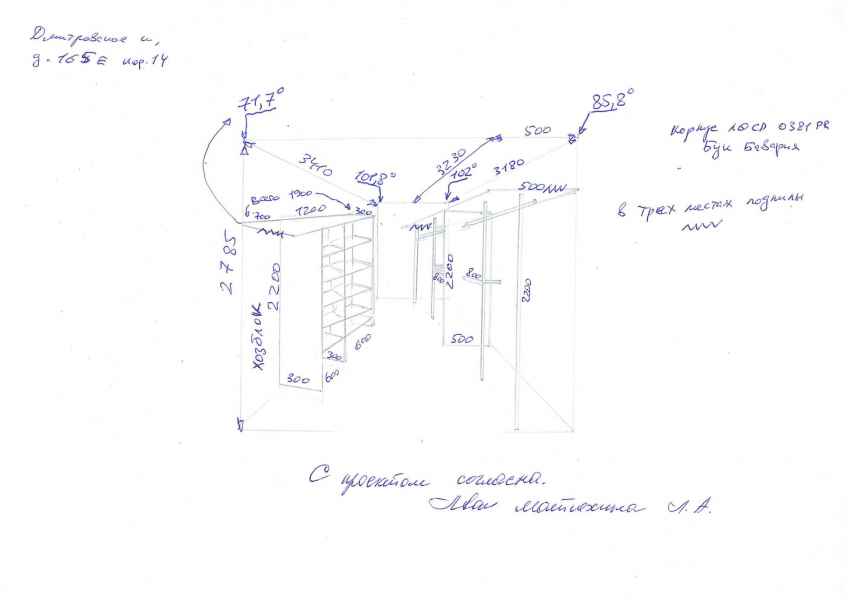 Дмитровское ш,
д. 165Е кор. 14
71,7°
85,8°
500
Корпус ЛДСП 0381 PR
Бук Бавария
3410
3230
101,8°
102°
3180
Всего 1900
700
1200
300
500
в трех местах подпилы
2785
хозблок
2200
600
2200
800
2200
300
600
300
600
500
С проектом согласна.
Л.А.